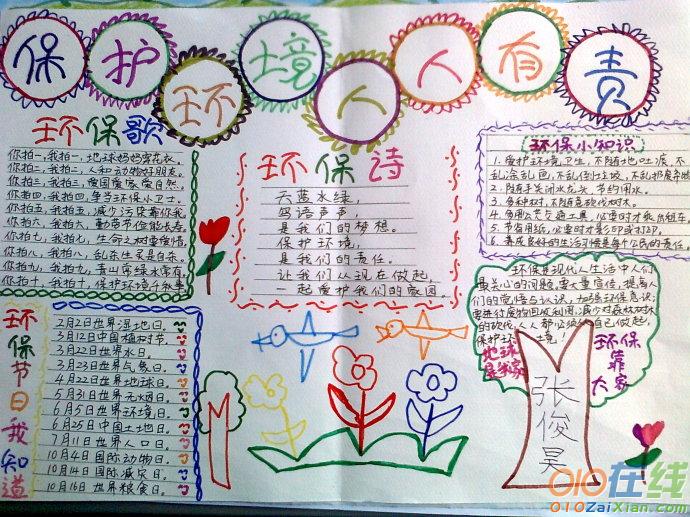 保护环境人人有责
环保歌
你拍一,我拍一,地球妈妈穿花衣。
你拍二,我拍二,人和动物好朋友。
你拍三,我拍三,爱国爱家爱自然。
你拍四,我拍四,争当环保小卫士。
你拍五,我拍五,减少污染靠你我。
你拍六,我拍六,勤劳节俭能长寿。
你拍七,我拍七,生命之树要爱惜。
你拍八,我拍八,乱杀生灵是自杀。
你拍九,我拍九,青山常绿水常有。
你拍十,我拍十,保护环境千秋事
环保诗
天蓝水绿,
鸟语声声,
是我们的梦想。
保护环境,
是我们的责任。
让我们从现在做起,
一起爱护我们的家园。
环保小知识
1.爱护环境卫生,不随地吐痰,不
乱涂乱画,不乱倒垃圾,不乱扔废弃物
2.随手关闭水龙头,节约用水。
3.多种树,不随意砍伐树木。
4.多用公共交通工具,必要时才乘出租车。
5.节省用纸,必要时才影印或打印。
6.养成良好的生活习惯是每个公民的责任。
环保节日我知道
2月2日世界湿地日。
3月12日中国植树节。
3月22日世界水日。
3月23日世界气象日。
4月22日世界地球日。
5月31日世界无烟日。
6月5日世界环境日。
6月25日中国土地日。
7月11日世界人口日。
10月4日国际动物日。
10月14日国际减灾日。
10月16日世界粮食日。
环保是现代人生活中人们
最关心的问题,要大量宣传,提高人
们的觉悟与认识,加强环保意识;
要进行废物回收利用,减少对森林树木
的砍伐,人人都必须从自己做起,
保护环境
地球是我家
环保靠大家
张俊昊
010在线
010ZaiXian.com